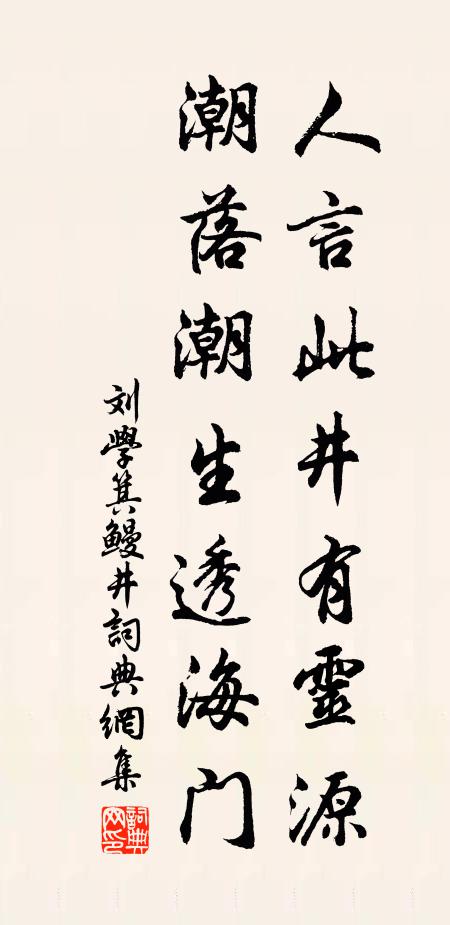 人言此井有靈源
潮落潮生透海門
刘學箕鰻井詞典網集